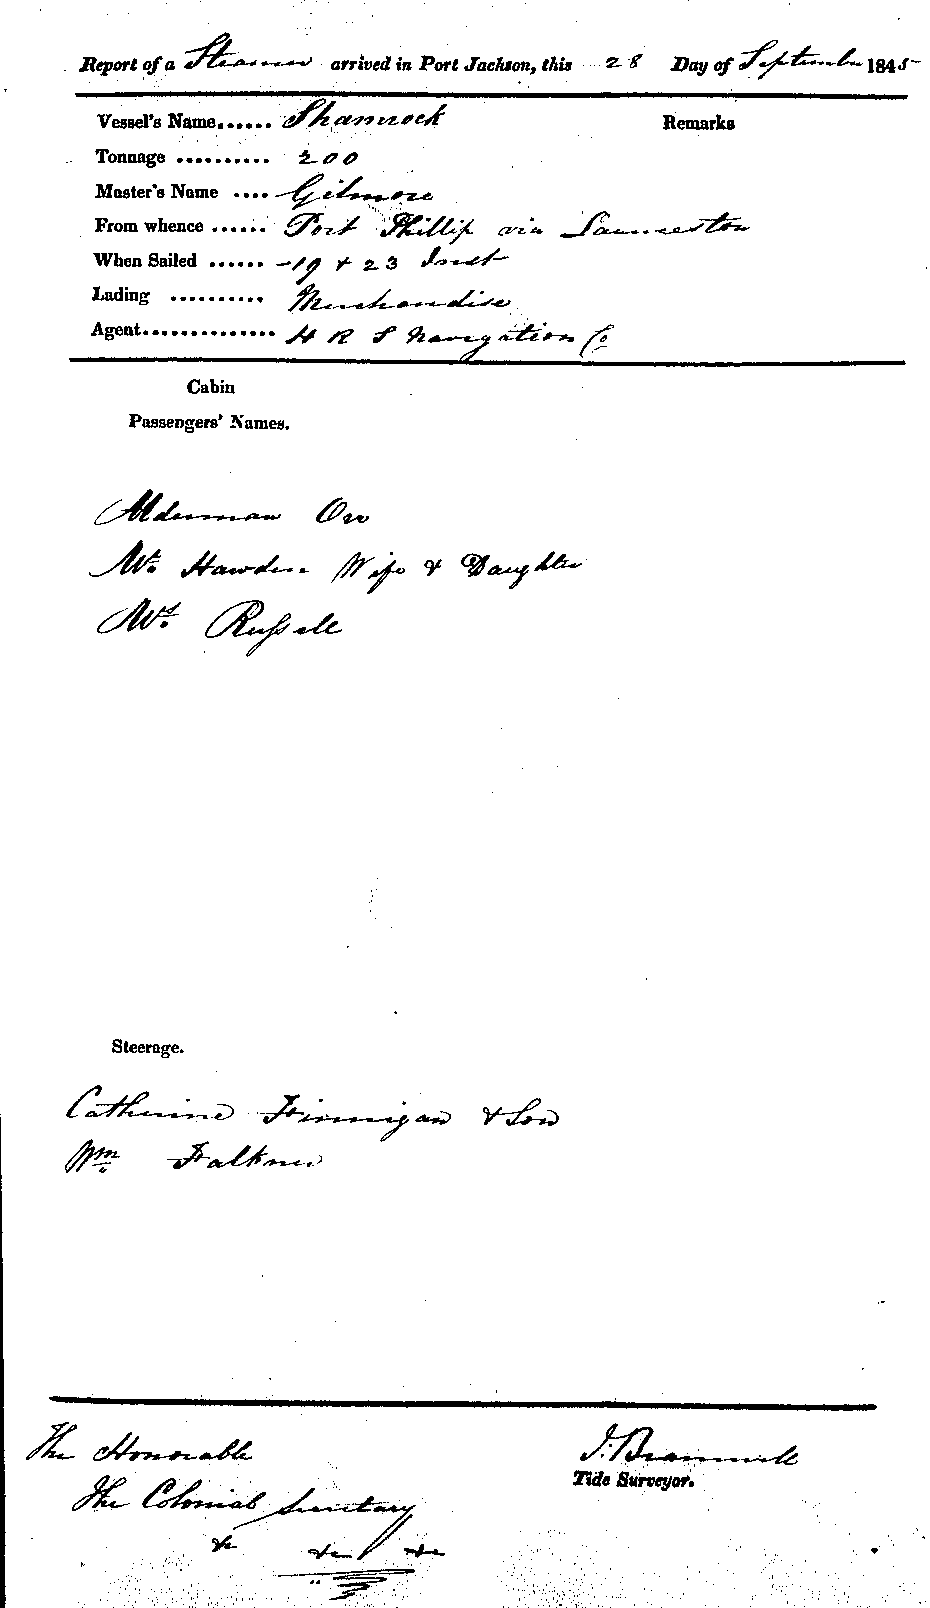 Report of a Steamer arrived in Port Jackson, this 28 Day of September 1845
Vessel's Name...... Shamrock Remarks
Tonnage .......... 200
Master's Name .... Gilmore
From whence ...... Port Phillip via Launceston
When Sailed ...... 19 + 23 Inst
Lading .......... Merchandise
Agent.............. H R S Navigation Co
Cabin
Passengers' Names.
Alderman Orr
Mr. Hawden Wife & Daughter
Mrs. Russell
Steerage.
Catherine Finnigan & Son
Wm Falkner
The Honorable
J. Bramwell
Tide Surveyor.
The Colonial Secretary
&c &c &c